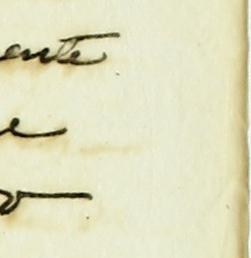 ente
e
o